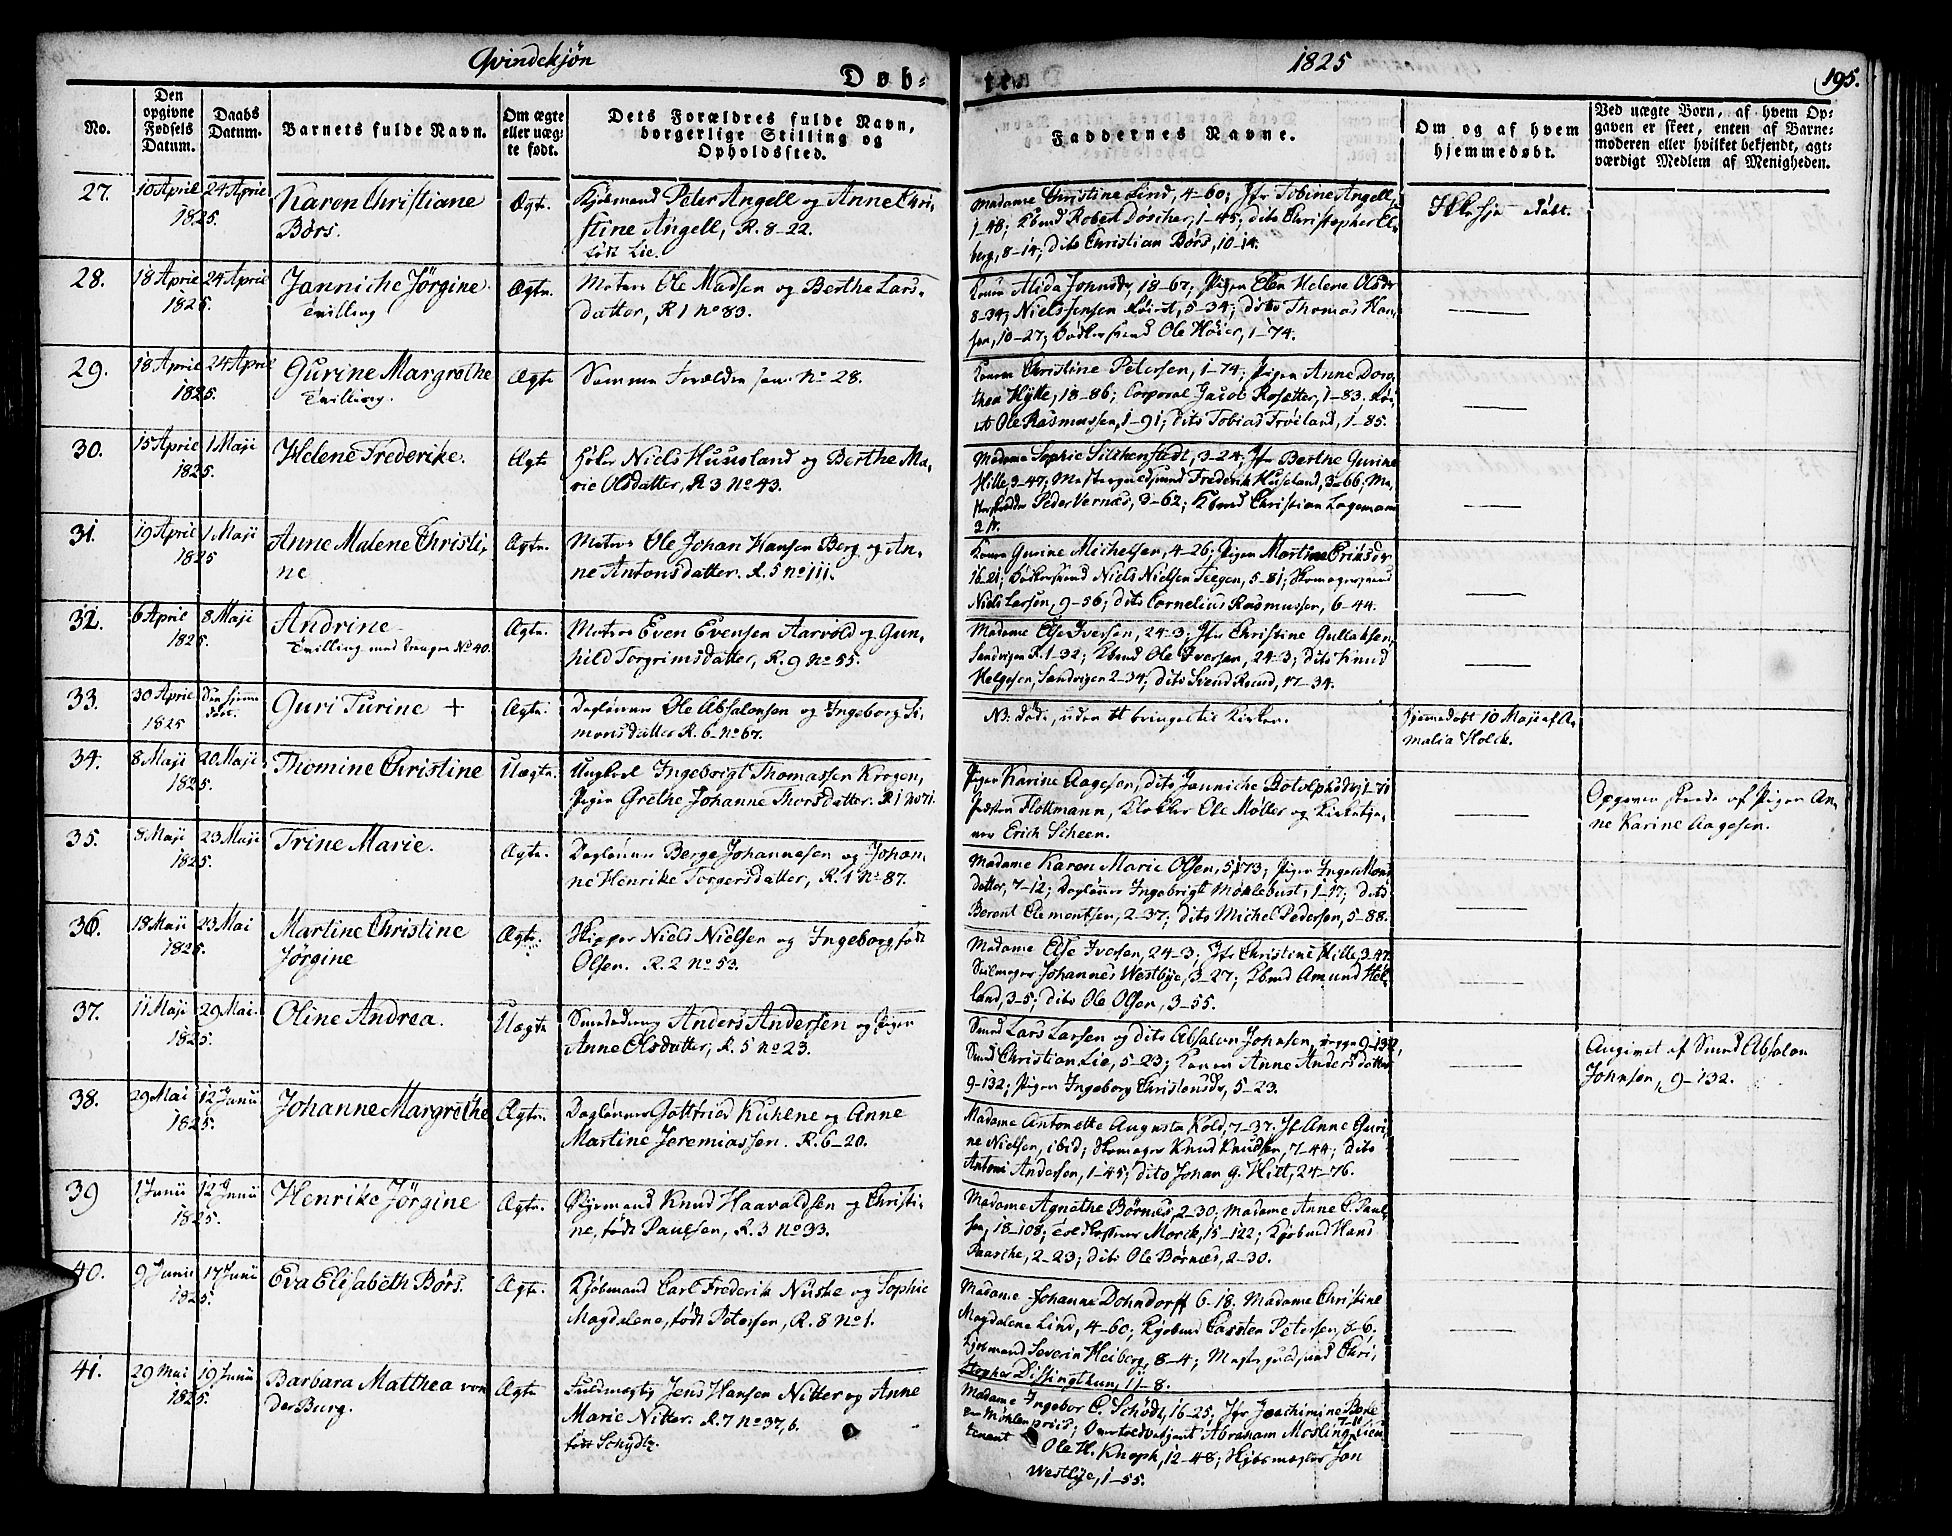 Qvindekjøn
Døb-
te.
1825
195.
No.
Den opgivne Fødsels Datum.
Daabs Datum.
Barnets fulde Navn.
Om ægte eller uæg-te født.
Dets Forældres fulde Navn, borgerlige Stilling og Opholdssted.
Faddernes Navne.
Om og af hvem hjemmedøbt.
Ved uægte Børn, af hvem Op-gaven er skeet, enten af Barne-moderen eller hvilket bekjendt, agt-værdigt Medlem af Menigheden.
27.
10 April 1825.
24 April
Karen Christiane
Børs.
Ægte.
Kjøbmand Peter Angell og Anne Chri-
stine Angell, R. 8-22.
født Lie.
Madame Christine Lind, 4-60; Jfr Tobine Angell,
1-48; Kbmd Robert Doscher, 1-45; dito Christopher El-
berg, 8-14; dito Christian Børs, 10-14.
døbt.
28.
18 April 1825.
24 April
Janniche Jörgine
Tvilling
Ægte.
Matros Ole Madsen og Berthe Lars-
datter, R 1 No 83.
Konen Alida Johnsdr, 18-67; Pigen Elen Helene Olsdr
8-34; Niels Jensen, 5-34; dito Thomas Han-
sen, 10-27; Bödkersvend Ole Höier, 1-74.
29.
18 April 1825.
24 April
Gurine Margrethe
Tvilling.
Ægte
Samme Forældre som No 28.
Konen Christine Petersen, 1-74; Pigen Anne Doro-
thea Hytte, 18-86; Corporal Jacob Rosetter, 1-83.
Ole Rasmussen, 1-91; dito Tobias Fröiland, 1-85.
30.
15 April 1825.
1 Maji
Helene Frederike.
Ægte
Niels Huusland og Berthe Ma-
rie Olsdatter, R 3 No 43.
Madame Sophie Silchenstedt, 3-24; Jfr Berthe Gurine
Hille, 3-47; Mestergutsvend Frederik Huseland, 3-66;
Peder Vernæs, 3-62; Kbmd Christian Lagemann
31.
19 April 1825
1 Maji
Anne Malene Christi-
ne
Ægte.
Matros Ole Johan Hansen Berg og An-
ne Antonsdatter. R. 5 No 111.
Konen Gurine Michelsen, 4-26; Pigen Martine Eriksdr
16-21; Bödkersvend Niels Nielsen Teigen, 5-81; Skomagersvend
Niels Larsen, 9-56; dito Cornelius Rasmussen, 6-44.
32.
6 April 1825.
8 Maji
Andrine
Tvilling med Drengen No 40.
Ægte.
Matros Even Evensen Aarvold og Gun-
hild Torgrimsdatter, R. 9 No 55.
Madame Else Iversen, 24-3; Jfr Christine Gullaksen,
Sandvigen R. 1-32; Kbmd Ole Iversen, 24-3; dito Knud
Helgesen, Sandvigen 2-34; dito Svend Roend, 17-34.
33.
30 April 1825
Guri Turine +
Ægte.
Daglönner Ole Absalonsen og Ingeborg Si-
monsdatter R. 6-No 67.
NB: döde, uden at bringes til Kirken.
Hjemmedøbt 10 Maji af A-
malia Holck.
34.
8 Maji 1825.
20 Maji
Thomine Christine
Uægte.
Ungkarl Ingebrigt Thomassen Krogen,
Pigen Grethe Johanne Thorsdatter. R 1 No 71.
Pigen Karine Aagesen, dito Janniche Botolphsdr, 1-71
Præsten Flottmann, Klokker Ole Möller og Kirketje-
ner Erich Scheen.
Opgaven skeede af Pigen An-
ne Karine Aagesen.
35.
8 Maji 1825.
23 Maji
Trine Marie.
Ægte.
Daglönner Berge Johannesen og Johan-
ne Henrike Torgersdatter, R. 1 No 87.
Madame Karen Marie Olsen, 5-173; Pigen Inger Mons
datter, 7-12; Daglönner Ingebrigt Möklebust, 1-17; dito
Berent Clementsen, 2-37; dito Michel Pedersen, 5-88.
36.
18 Maji 1825.
23 Mai
Martine Christine
Jörgine
Ægte.
Skipper Niels Nielsen og Ingeborg, född
Olsen. R. 2 No 53.
Madame Else Iversen, 24-3; Jfr Christine Hille, 3-47.
Seilmager Johannes Westbye, 3-27; Kbmd Amund Hel-
land, 3-5; dito Ole Olsen, 3-55.
37.
11 Maji 1825.
29 Mai.
Oline Andrea.
Uægte
Smededreng Anders Andersen og Pigen
Anne Olsdatter, R. 5 No 23.
Smed Lars Larsen og dito Absalon Johnsen, begge 9-132,
Smed Christian Lie, 5-23; Konen Anne Andersdatter
9-132; Pigen Ingeborg Christensdr, 5-23.
Angivet af Smed Absalon
Johnsen, 9-132.
38.
29 Mai 1825.
12 Junii
Johanne Margrethe
Ægte.
Daglönner Gottfried Kuhlne og Anne
Martine Jeremiassen. R. 6-20.
Madame Antonette Augusta Kold, 7-37. Jf Anne Guri-
ne Nielsen, ibid; Skomager Knud Knudsen, 7-44; dito
Antoni Andersen, 1-45; dito Johan G. Hitt, 24-76.
39
1 Junii 1825.
12 Junii
Henrike Jörgine
Ægte.
Styrmand Knud Haavaldsen og Christi-
ne, född Paulsen, R. 3 No 33.
Madame Agnethe Börnes, 2-30; Madame Anne C. Paul-
sen, 18-108; Morck, 15-122; Kjöbmd Hans
Paasche, 2-23; dito Ole Börnes, 2-30.
40.
9 Junii 1825.
17 Junii
Eva Elisabeth Børs.
Ægte.
Kjöbmand Carl Frederik Nuske og Sophie
Magdalene, född Petersen, R. 8 No 1.
Madame Johanne Dohndorff 6-18. Madame Christine
Magdalene Lind, 4-60; Kjöbmd Carsten Petersen, 8-6;
Kjöbmand Severin Heiberg, 8-4; Chri-
stopher Dissingthun, 11-8.
41.
29 Mai 1825.
19 Junii
Barbara Matthea von
der Burg.
Ægte
Fuldmægtig Jens Hansen Nitter og Anne
Marie Nitter. R. 7 No 37, b.
född Schydtz.
Madame Ingebor C. Schödt, 16-25; Jfr Joachimine
Abraham Mosling, Lieu-
tenant Ole H. Knoph, 12-48; Jan
Westbye, 1-55.